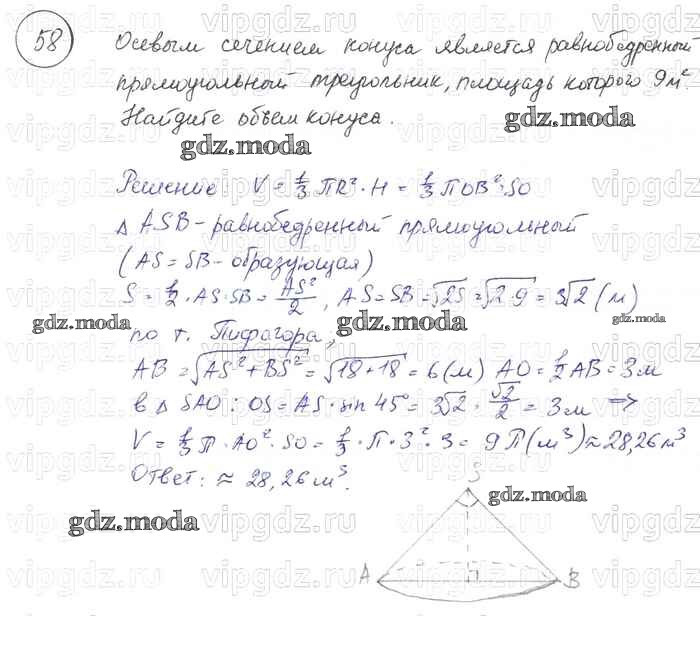 58
Осевым сечением конуса является равнобедренный
прямоугольный треугольник, площадь которого 9 м².
Найдите объем конуса.
gdz.moda
gdz.moda
Решение: V = 1/3 ПR²·H = 1/3 ПOB²·SO
△ASB - равнобедренный прямоугольный
(AS = SB - образующая)
S = 1/2 · AS·SB = AS²/2, AS = SB = √2S = √2·9 = 3√2 (м)
gdz.moda
gdz.moda
по т. Пифагора;
AB = √AS²+BS² = √18+18 = 6 (м) AO = 1/2 AB = 3м
в △ SAO: OS = AS·sin 45° = 3√2 · √2/2 = 3м ⇒
V = 1/3 П · AO²·SO = 1/3 · П·3²·3 = 9П (м³) ≈ 28,26м³
Ответ: ≈ 28,26 м³.
S
gdz.moda
gdz.moda
A
B
vipgdz.ru